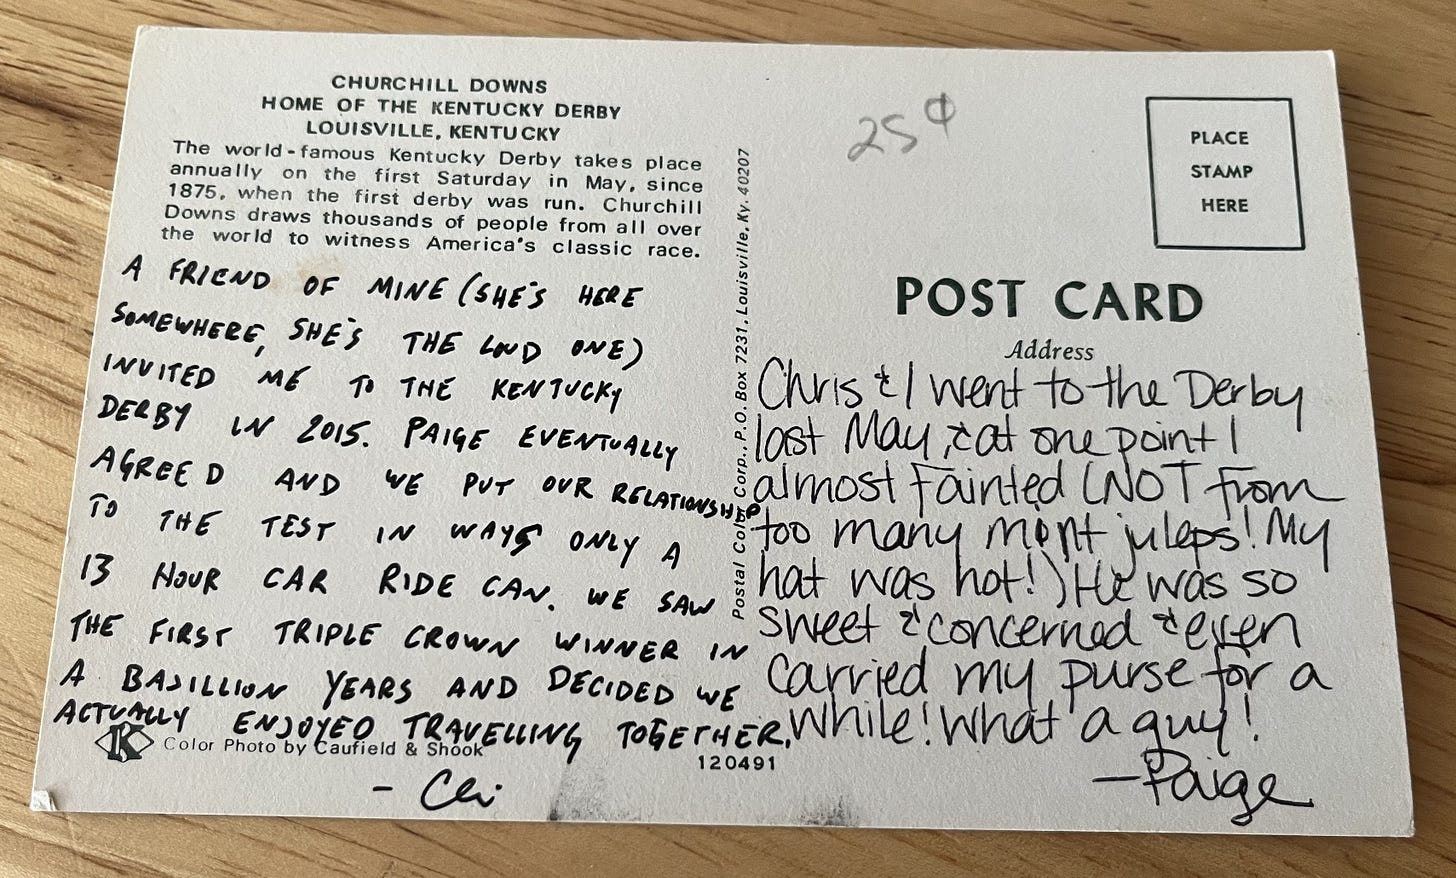 CHURCHILL DOWNS
HOME OF THE KENTUCKY DERBY
LOUISVILLE, KENTUCKY
The world-famous Kentucky Derby takes place
annually on the first Saturday in May, since
1875, when the first derby was run. Churchill
Downs draws thousands of people from all over
the world to witness America's classic race.
A FRIEND OF MINE (SHE'S HERE
SOMEWHERE, SHE'S THE LOUD ONE)
INVITED ME TO THE KENTUCKY
DERBY IN 2015. PAIGE EVENTUALLY
AGREED AND WE PUT OUR RELATIONSHIP
TO THE TEST IN WAYS ONLY A
13 HOUR CAR RIDE CAN. WE SAW
THE FIRST TRIPLE CROWN WINNER IN
A BAJILLION YEARS AND DECIDED WE
ACTUALLY ENJOYED TRAVELLING TOGETHER.
K Color Photo by Caufield & Shook
120491
- Chi
Postal Color Corp., P.O. Box 7231, Louisville, Ky. 40207
25¢
PLACE
STAMP
HERE
POST CARD
Address
Chris & I went to the Derby
last May, & at one point I
almost fainted (NOT from
too many mint juleps! My
hat was hot!) He was so
sweet & concerned & even
carried my purse for a
while! What a guy!
—Paige